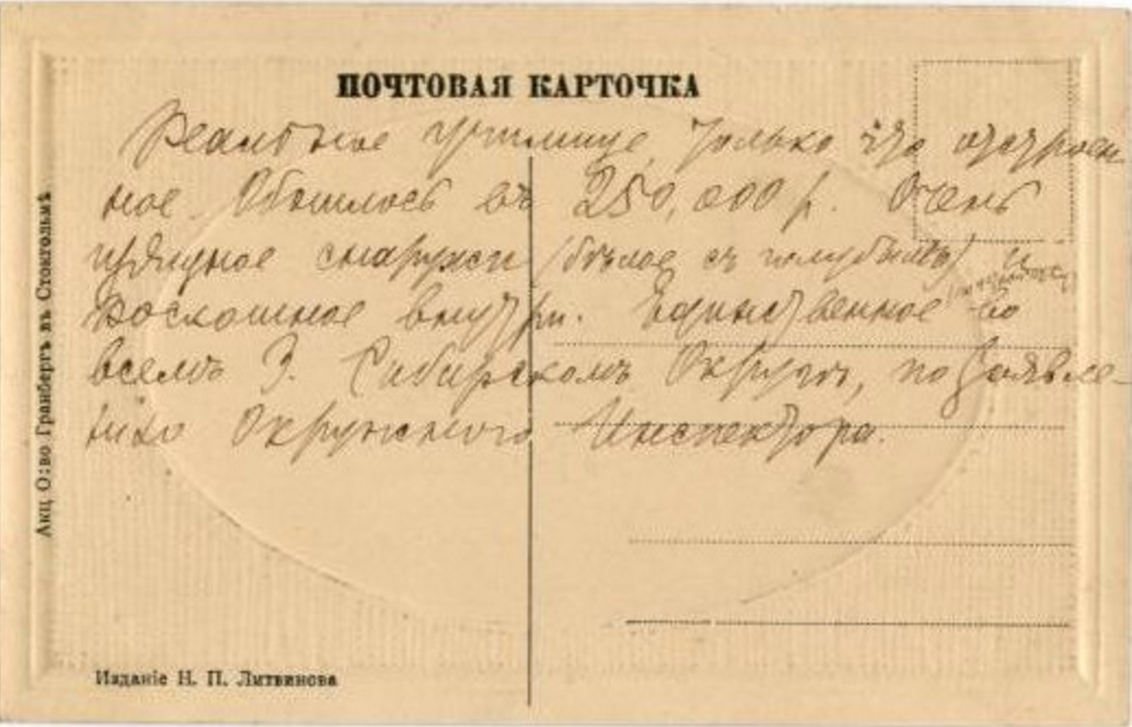 ПОЧТОВАЯ КАРТОЧКА
Реальное училище, только что отстроен-
ное. Обошлось въ 250,000 р. Очень
изящное снаружи (бѣлое съ голубымъ) и
роскошное внутри. Единственное во
всемъ З. Сибирскомъ Округѣ, по заявле-
нію Окружного Инспектора.
Акц. О:во Гранбергъ въ Стокгольмѣ
Изданіе Н. П. Литвинова